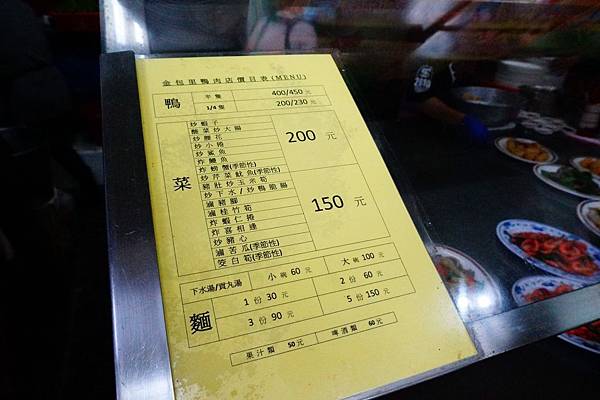 金包里鴨肉店價目表(MENU)
鴨 半隻 400/450元
1/4隻 200/230元
菜
炒蝦子
酸菜炒大腸
炒腰花
炒小捲
炒鯊魚
炸鱈魚
炸螃蟹(季節性)
炒芹菜魷魚(季節性)
豬肚炒玉米筍
炒下水/炒鴨脆腸
200 元
滷豬腳
滷桂竹筍
炸蝦仁捲
炸喜相逢
炒豬心
滷苦瓜(季節性)
筊白筍(季節性)
150 元
下水湯/貢丸湯 小碗60元 大碗100元
麵 1份30元 2份60元
3份90元 5份150元
果汁類 50元 啤酒類 60元